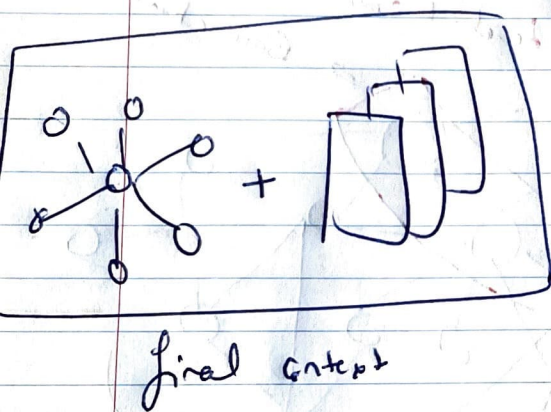 +
final context